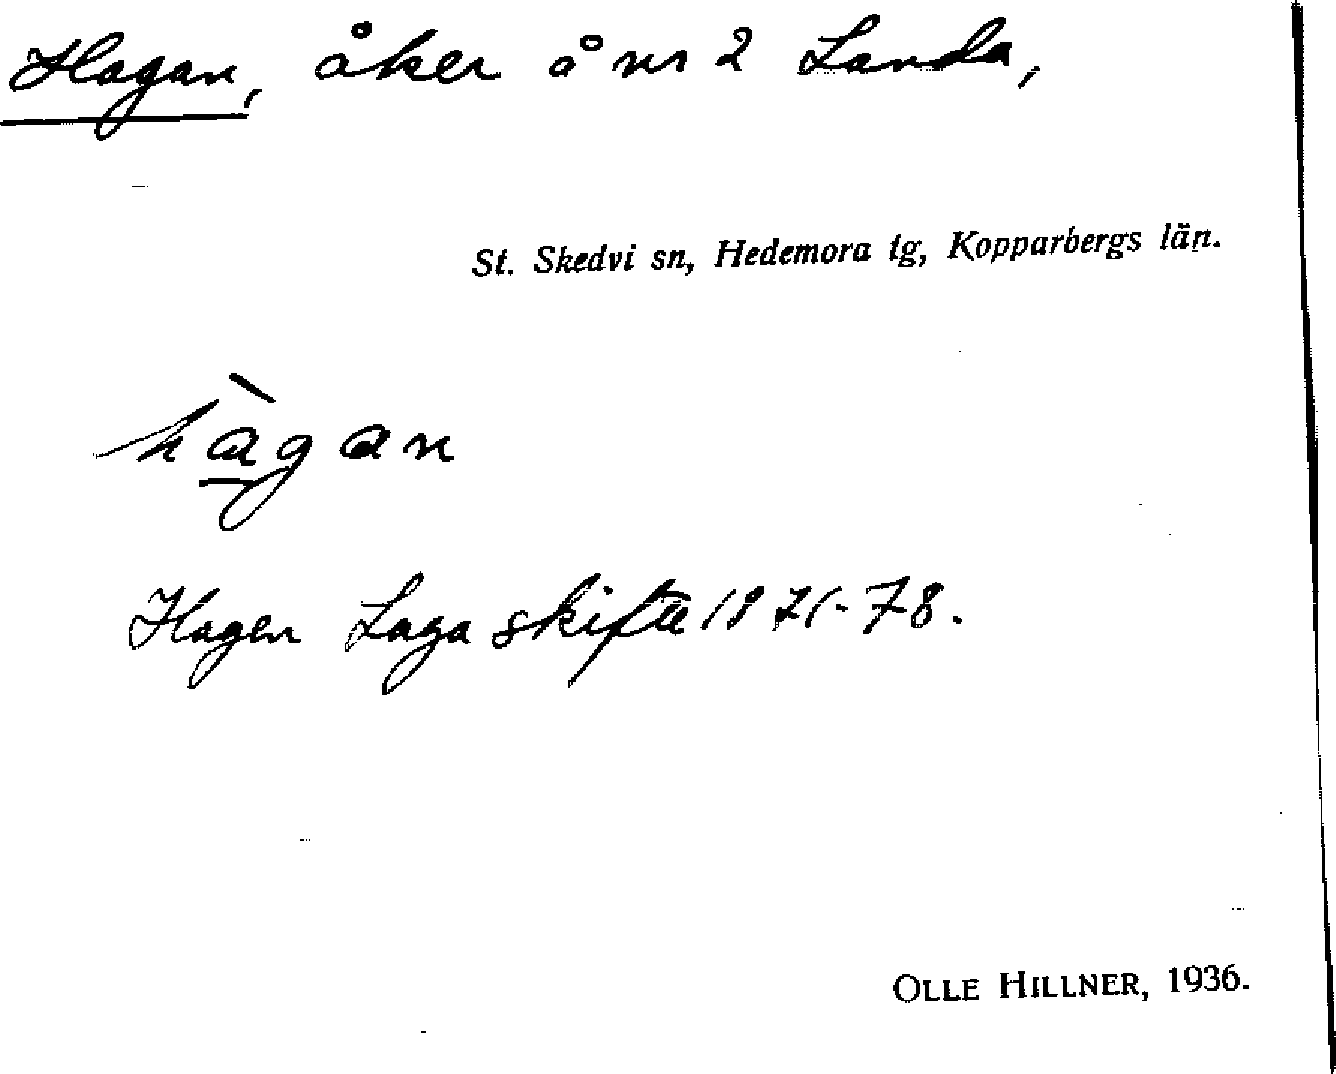 Hagan, åker å nr 2 Landa,
St. Skedvi sn, Hedemora tg, Kopparbergs län.
hàgan
Hagen Laga skifte 1871-78.
OLLE HILLNER, 1936.